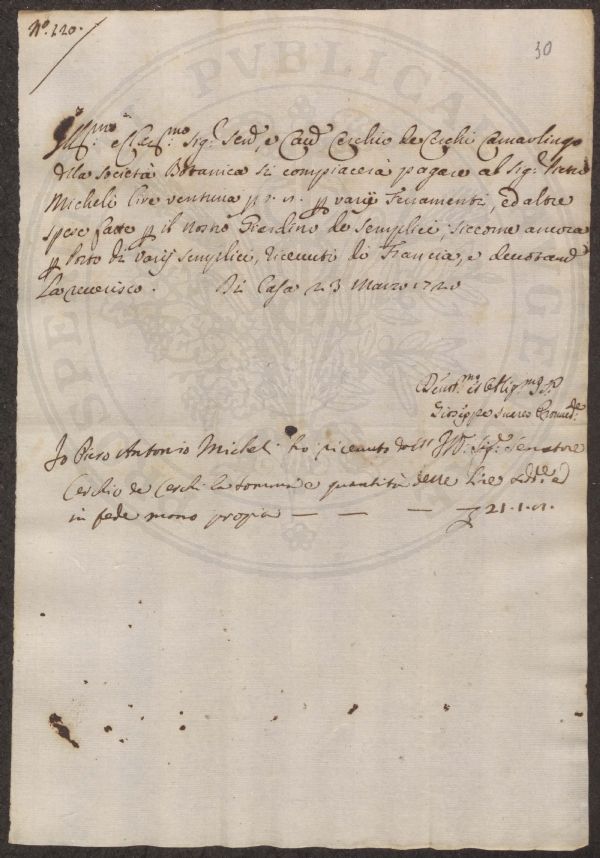 N.º 220.
30
Ill.mo e Cl.mo Sig.r Sen.e, e Cav. Cerchio de Cerchi Camarlingo
della Società Botanica si compiacerà pagare al Sig.r
Micheli lire ventuna p varij ferramenti, ed altre
spese fatte p il nostro Giardino de Semplici, siccome ancora
p Porto di varij semplici, ricevuti di Francia, e
la reverisco. Di Casa 23 Marzo 1720
Devot.mo et Oblig.mo
Giuseppe Suares
Io Piero Antonio Micheli ho ricevuto Ill. Sig.r Senatore
Cerchio de Cerchi la somma e quantità delle Lire ed
in fede mano propria — — — — 21.1.